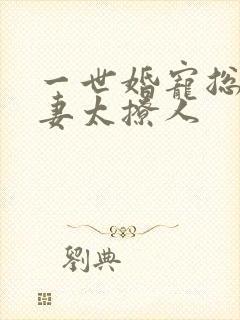 一世婚寵总
妻太撩人
劉典